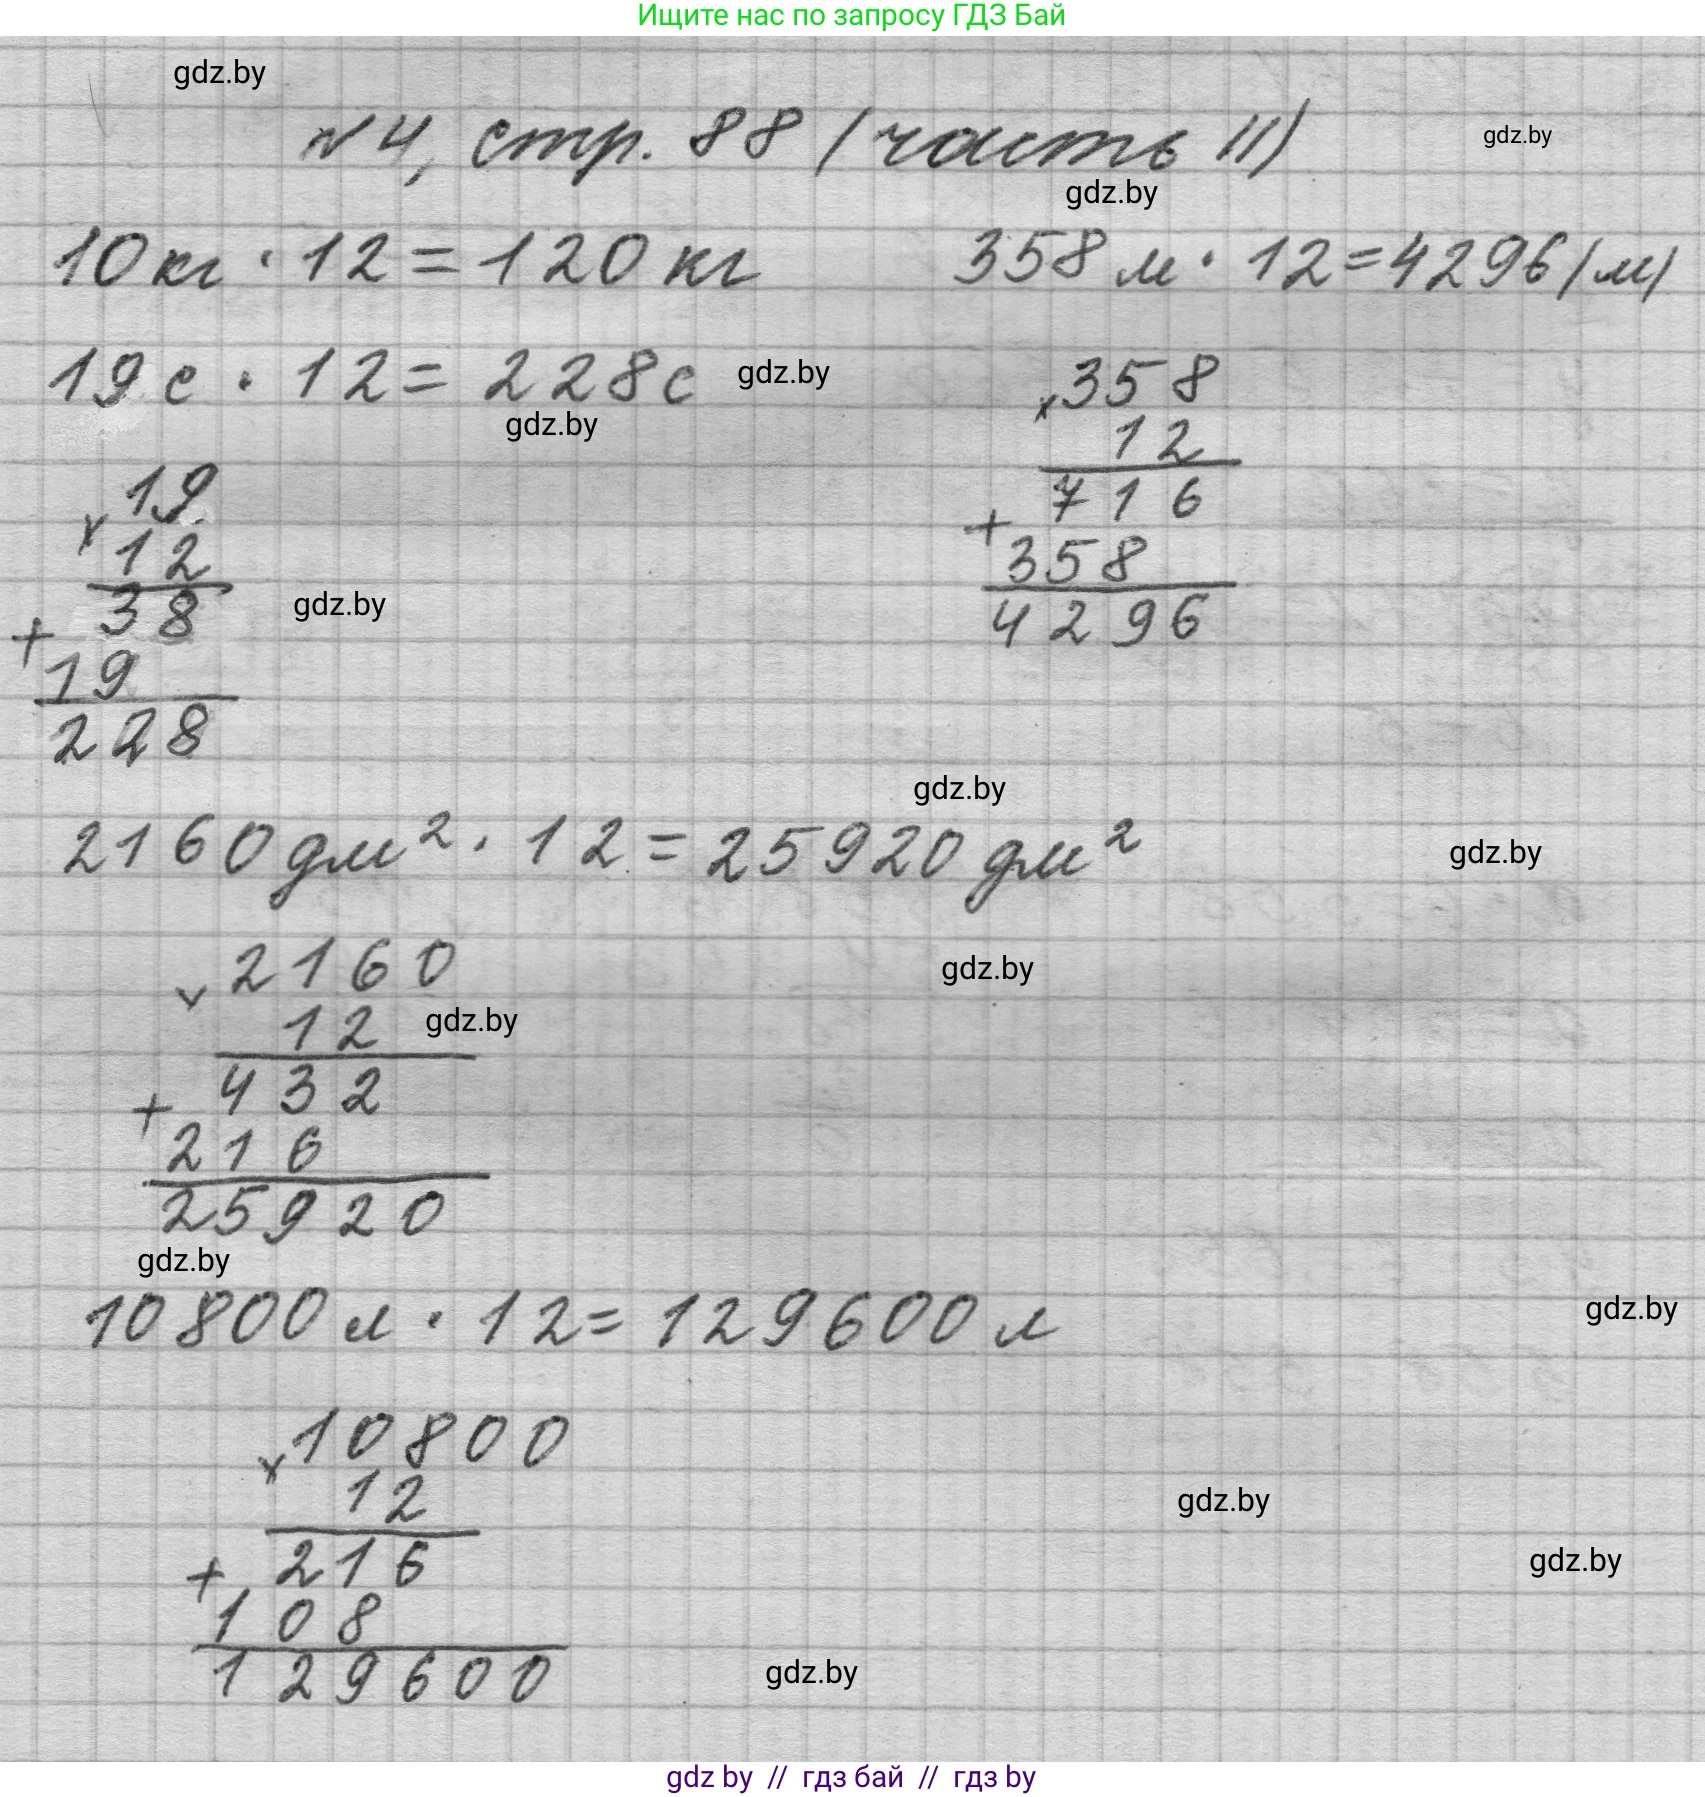 Ищите нас по запросу ГДЗ Бай
gdz.by
№4, стр. 88 (часть II)
gdz.by
gdz.by
10 кг · 12 = 120 кг
358 м · 12 = 4296 (м)
19 с · 12 = 228 с
gdz.by
gdz.by
19
× 12
38
+ 19
228
gdz.by
× 358
12
716
+ 358
4296
gdz.by
2160 дм² · 12 = 25920 дм²
gdz.by
2160
× 12
gdz.by
gdz.by
432
+ 216
25920
gdz.by
10800 л · 12 = 129600 л
gdz.by
× 10800
12
gdz.by
216
+ 108
129600
gdz.by
gdz.by
gdz by // гдз бай // гдз by